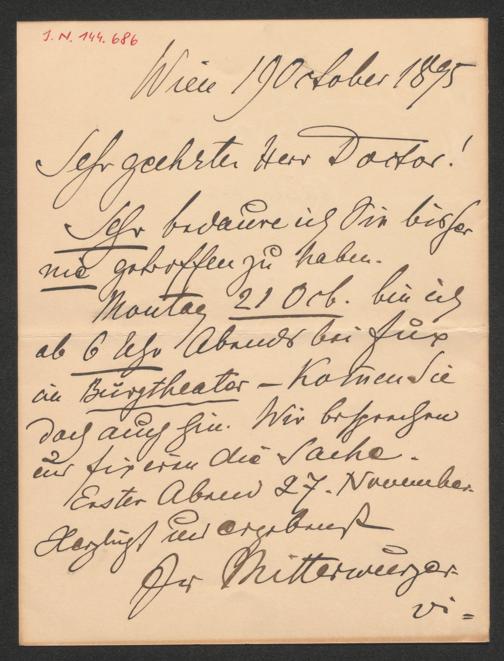 J. N. 144.686
Wien 19 October 1895
Sehr geehrter Herr Doctor!
Sehr bedaure ich Sie bisher
nie getroffen zu haben.
Montag 21 Oct. bin ich
ab 6 Uhr Abends bei Fux
im Burgtheater – Kom̄en Sie
doch auch hin. Wir besprechen
und fixieren die Sache.
Erster Abend 27. November.
Herzlichst und ergebenst
Mitterwurzer